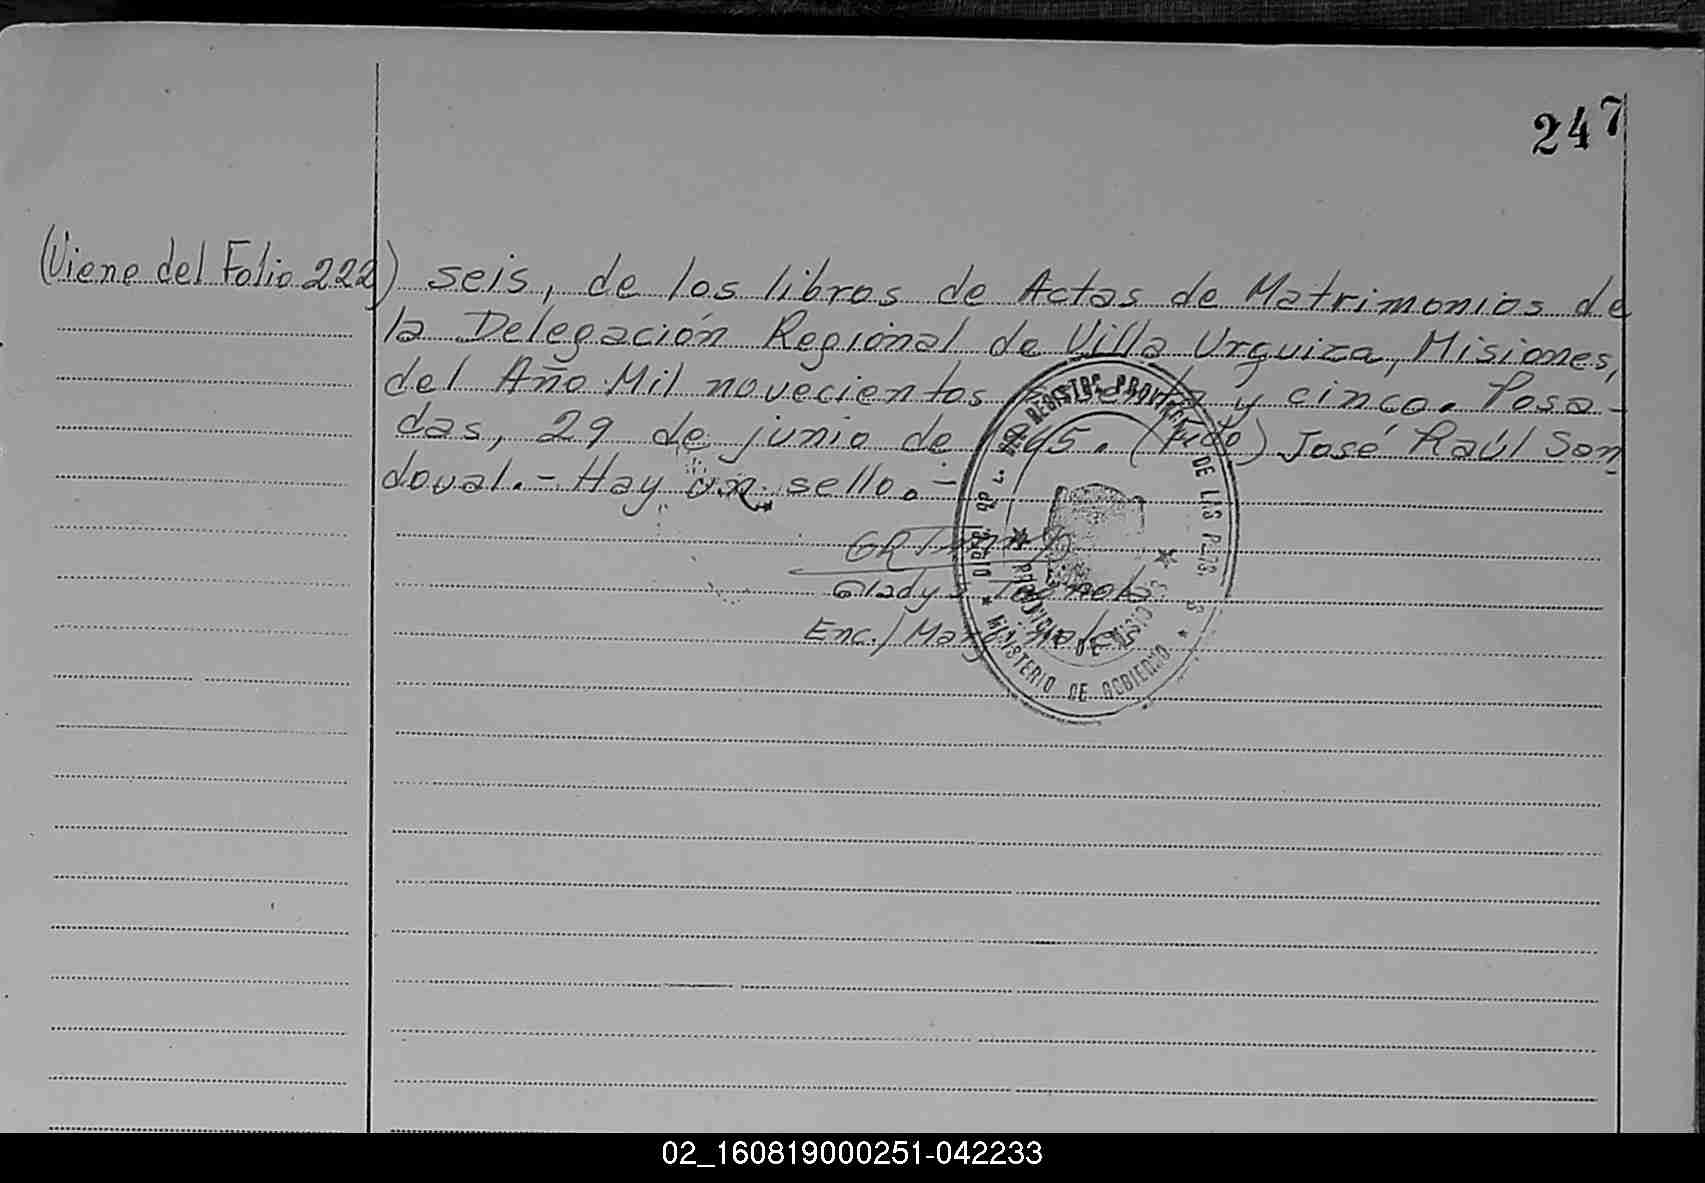 247
(Viene del Folio 222) seis, de los libros de Actas de Matrimonios de
la Delegación Regional de Villa Urquiza, Misiones,
del Año Mil novecientos y cinco. Posa-
das, 29 de junio de (Fido) José Raúl San
doval.- Hay un sello.-
Gladys
Enc./Marginales
REGISTRO PROVINCIAL DE LAS PERS.
MINISTERIO DE GOBIERNO
PROVINCIA DE MISIONES
02_160819000251-042233